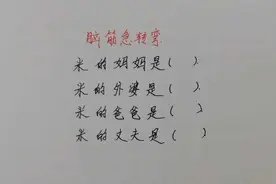 脑筋急转弯
米的妈妈是( )
米的外婆是( )
米的爸爸是( )
米的丈夫是( )